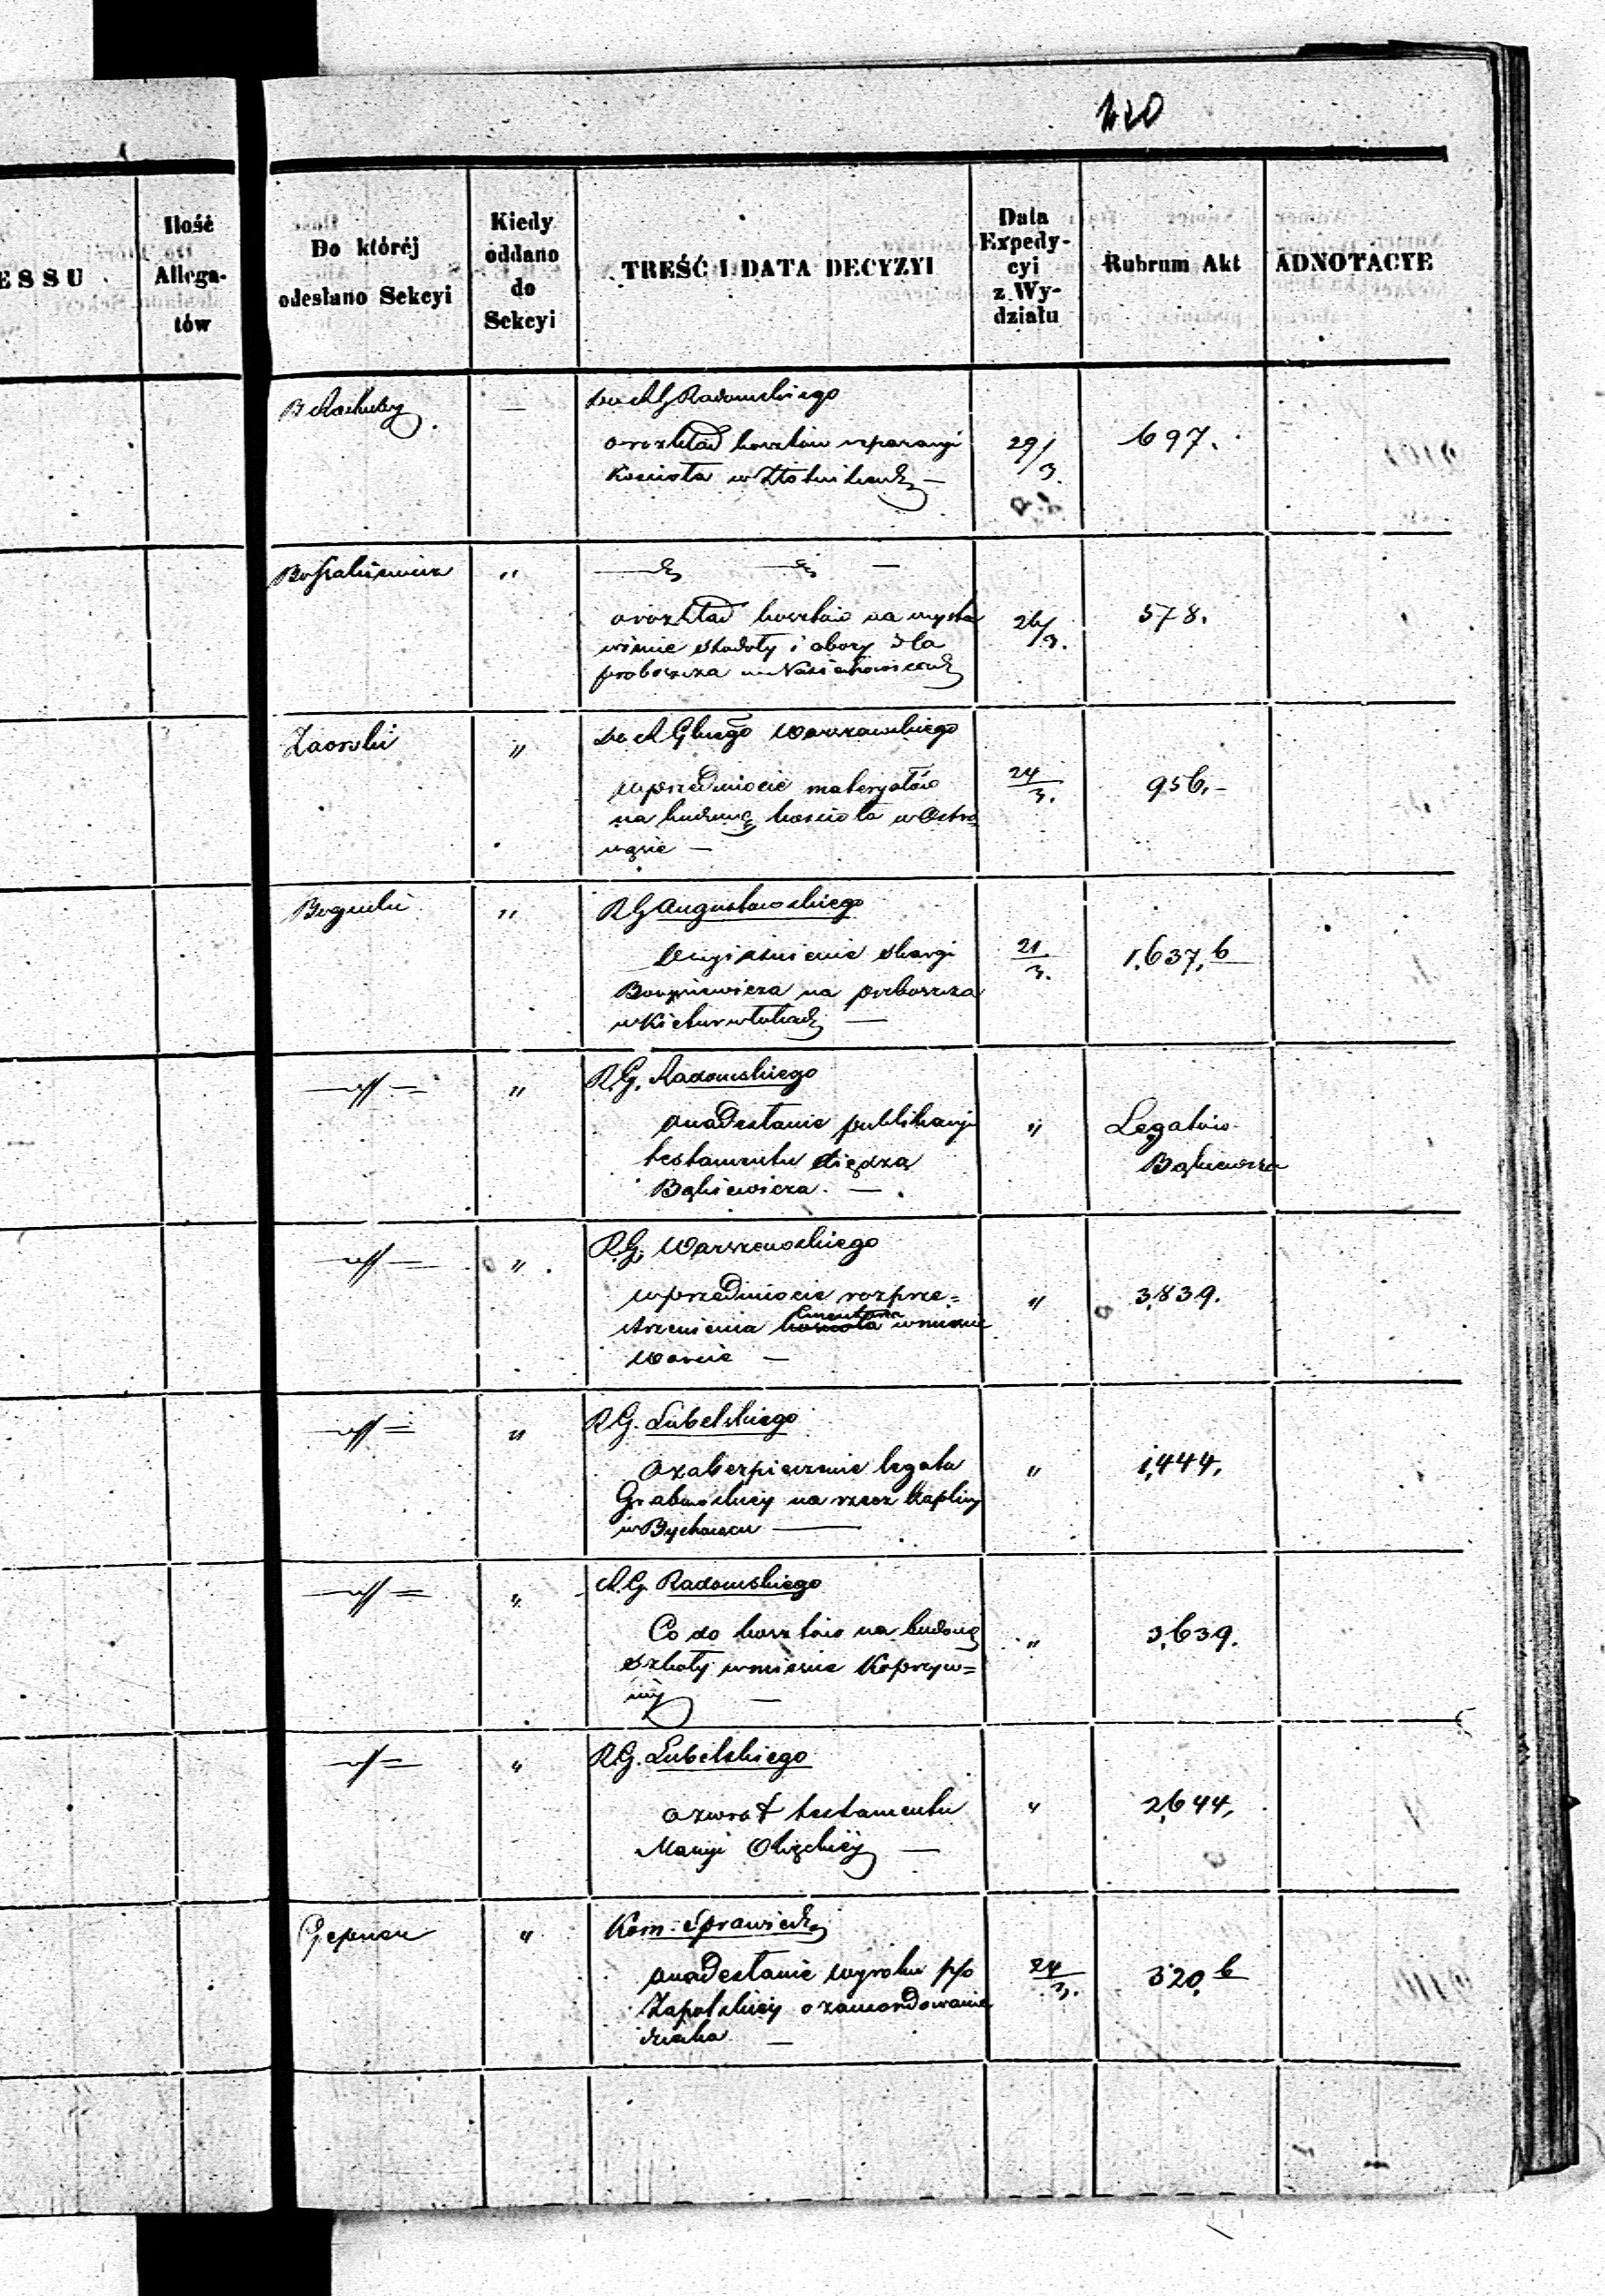 120
ESSU
Ilość
Allega-
tów
Do której
odesłano Sekcyi
Kiedy
oddano
do
Sekcyi
TREŚĆ I DATA DECYZYI
Data
Expedy-
cyi
z Wy-
działu
Rubrum Akt
ADNOTACYE
—
Radomskiego
o rozkład kosztów reparacyi
Kościoła w Złotnikach —
29/3.
697.
"
o rozkład kosztów na wysta
wienie stodoły i obory dla
proboszcza w
26/3.
578.
Zaorski
"
Warszawskiego
w przedmiocie materyałów
na budowę kościoła w Ostro
wąsie —
24/3.
956.–
Bogucki
"
RG Augustowskiego
O wyjaśnienie skargi
na proboszcza
w —
21/3.
1,637,b
"
R.G. Radomskiego
o nadesłanie publikacyi
testamentu Księdza
Bąkiewicza. —
"
Legatów
Bąkiewicza
"
R.G. Warszawskiego
w przedmiocie rozprze=
strzenienia cmentarza w mieście
Warcie —
"
3,839.
"
R.G. Lubelskiego
O zabezpieczenie legatu
Grabowskiej na rzecz kaplicy
w Bychawie —
"
1,444.
"
R.G. Radomskiego
Co do kosztów na budowę
szkoły w mieście Koprzyw=
nicy —
"
3,639.
"
R.G. Lubelskiego
o zwrot testamentu
Maryi —
"
2,644,
"
Kom: Sprawiedl
o nadesłanie wyroku p/o
Zapolskiej o zamordowanie
dziecka —
24/3.
320,b